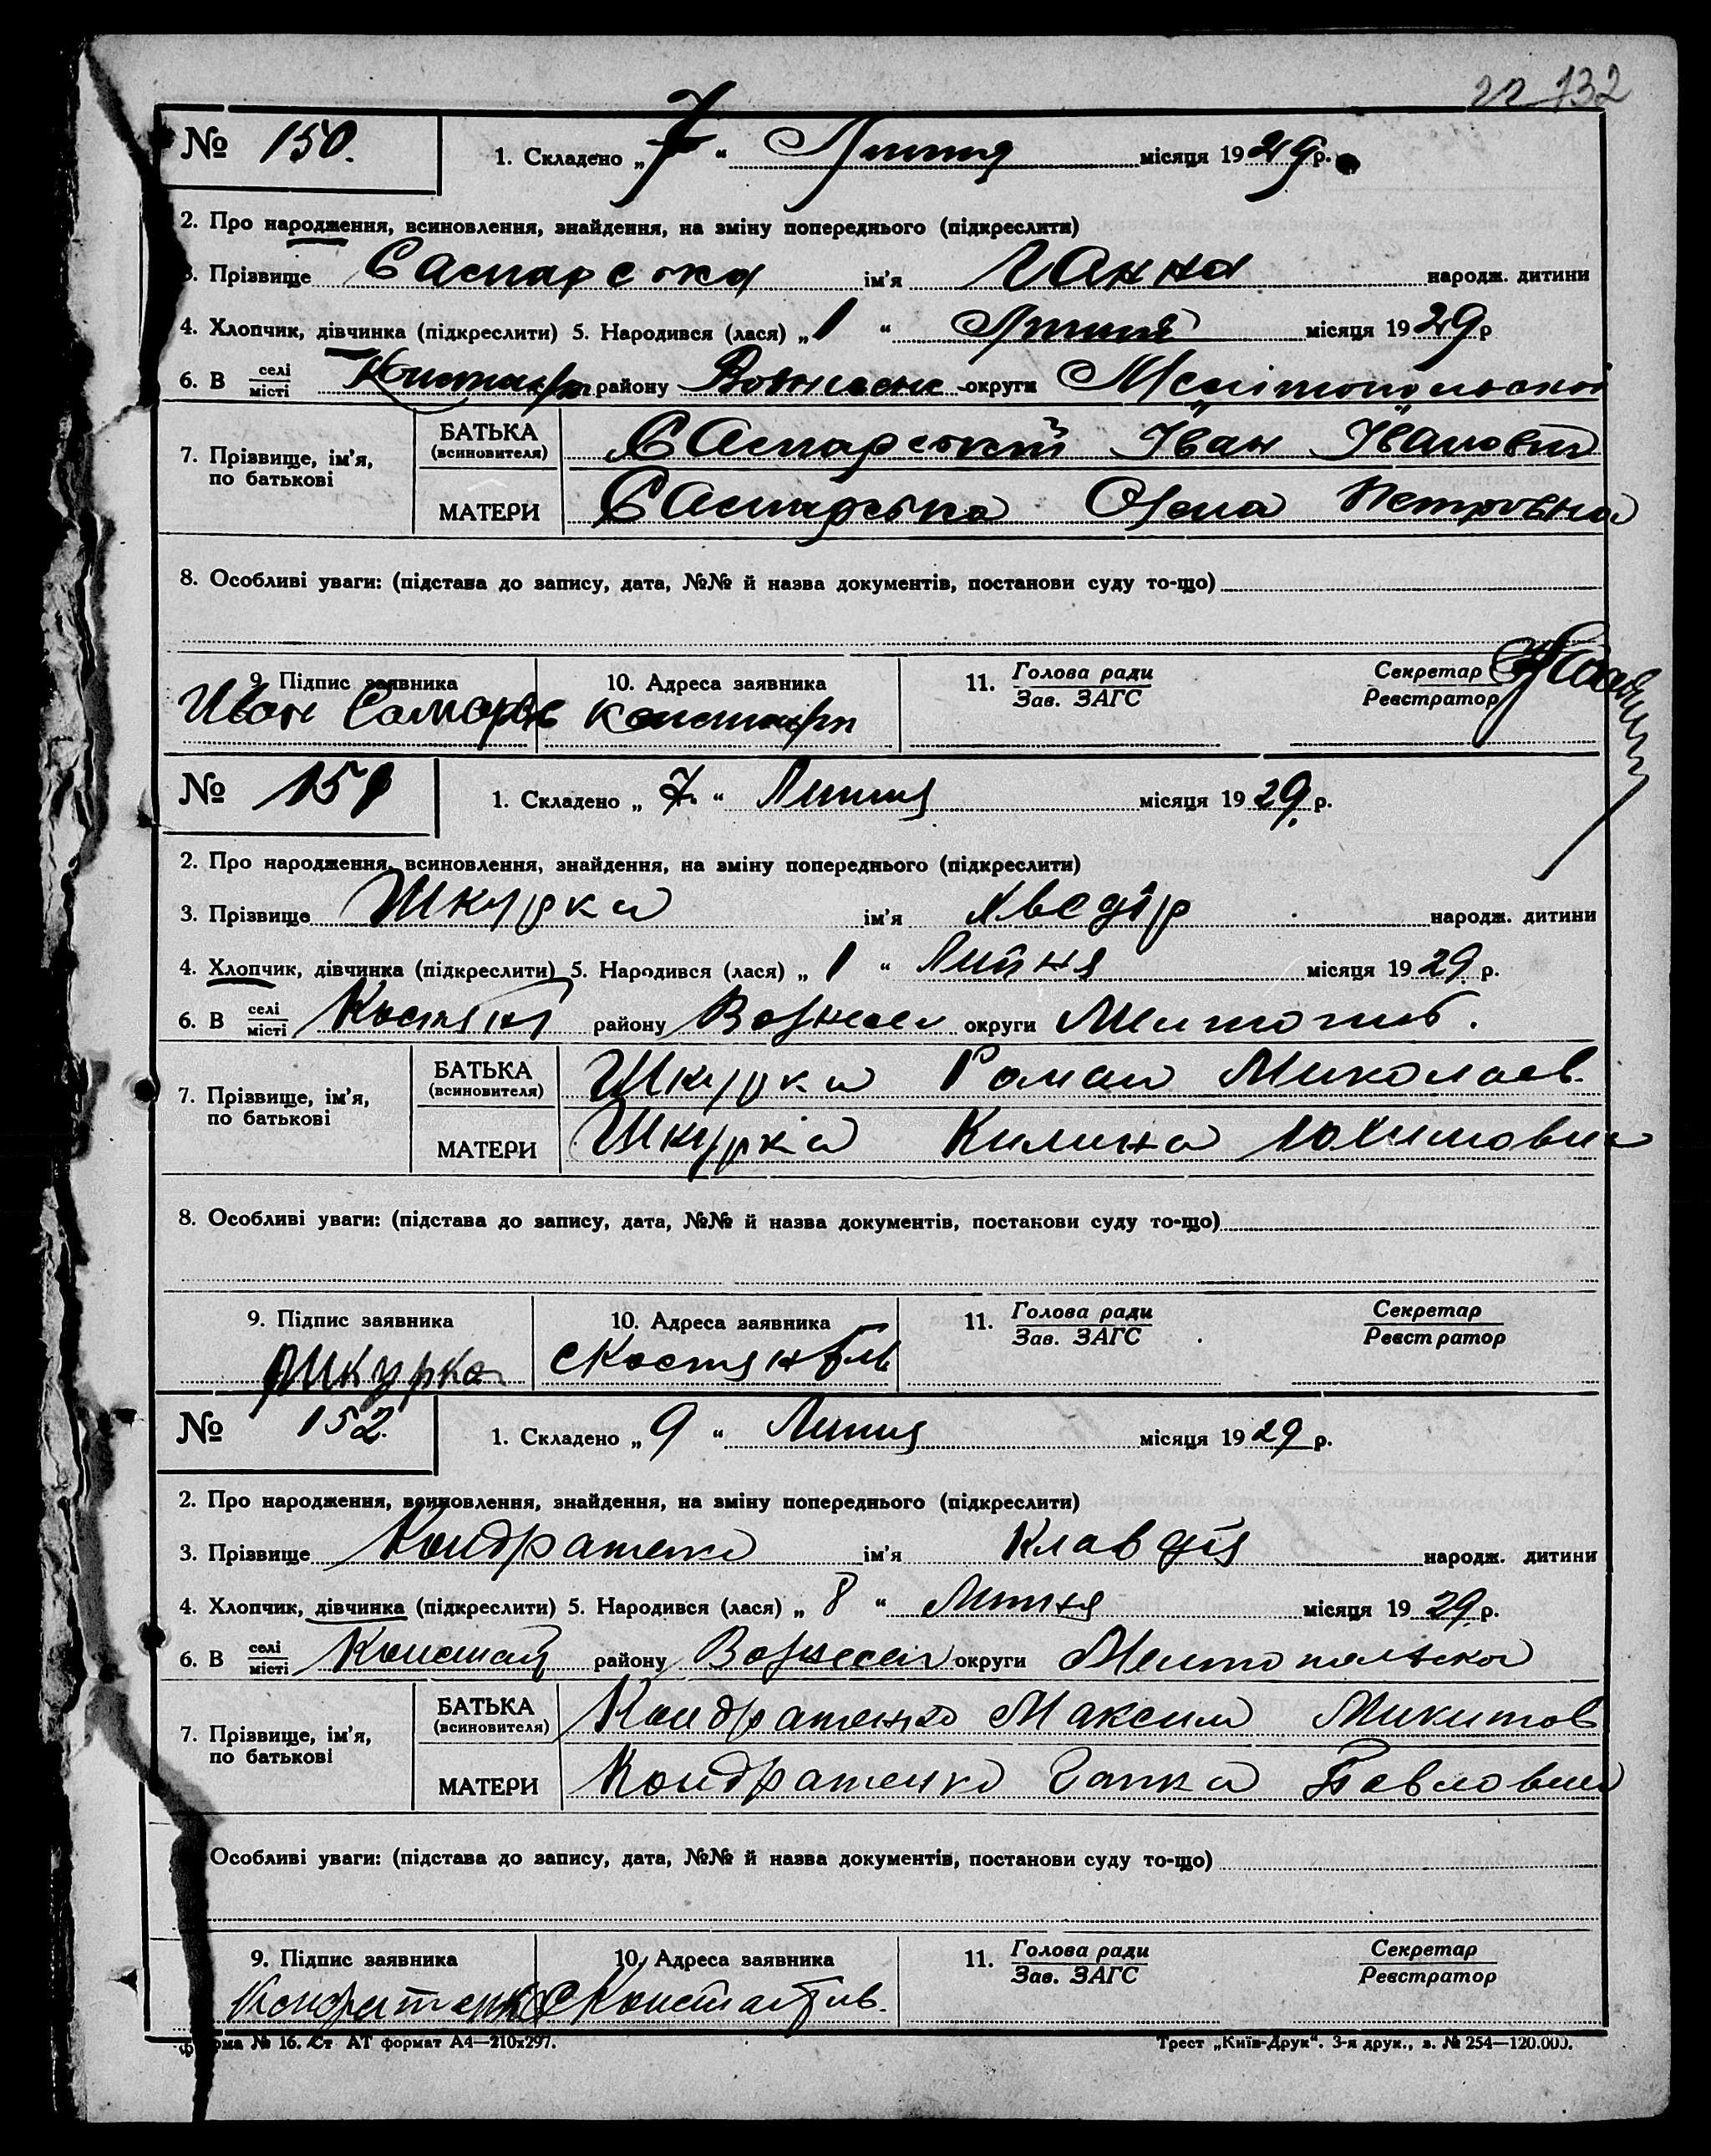 132
№ 150. 1. Складено „ 7 “ Липня місяця 1929 р.
2. Про народження, всиновлення, знайдення, на зміну попереднього (підкреслити)
3. Прізвище ім'я Ганна народж. дитини
4. Хлопчик, дівчинка (підкреслити) 5. Народився (лася) „ 1 “ Липня місяця 1929 р
6. В селі/місті району округи Мелітопольской
7. Прізвище, ім'я, по батькові
БАТЬКА (всиновителя) Іван Іванович
МАТЕРИ Олена Петровна
8. Особливі уваги: (підстава до запису, дата, №№ й назва документів, постанови суду то-що)
9. Підпис заявника 10. Адреса заявника 11. Голова ради/Зав. ЗАГС Секретар/Реєстратор
Иван
№ 151 1. Складено „ 7 “ Липня місяця 1929. р.
2. Про народження, всиновлення, знайдення, на зміну попереднього (підкреслити)
3. Прізвище Шкурка ім'я Хведір народж. дитини
4. Хлопчик, дівчинка (підкреслити) 5. Народився (лася) „ 1 “ Липня місяця 1929. р.
6. В селі/місті району Вознесен округи
7. Прізвище, ім'я, по батькові
БАТЬКА (всиновителя) Шкурка Роман Миколаєв.
МАТЕРИ Шкурка Килина Юхимовна
8. Особливі уваги: (підстава до запису, дата, №№ й назва документів, постанови суду то-що)
9. Підпис заявника 10. Адреса заявника 11. Голова ради/Зав. ЗАГС Секретар/Реєстратор
Шкурка
№ 152. 1. Складено „ 9 “ Липня місяця 1929 р.
2. Про народження, всиновлення, знайдення, на зміну попереднього (підкреслити)
3. Прізвище Кондратенко ім'я Клавдія народж. дитини
4. Хлопчик, дівчинка (підкреслити) 5. Народився (лася) „ 8 “ Липня місяця 1929. р.
6. В селі/місті району Вознесен округи
7. Прізвище, ім'я, по батькові
БАТЬКА (всиновителя) Кондратенко Максим Микитов
МАТЕРИ Кондратенко Гапка Павловна
Особливі уваги: (підстава до запису, дата, №№ й назва документів, постанови суду то-що)
9. Підпис заявника 10. Адреса заявника 11. Голова ради/Зав. ЗАГС Секретар/Реєстратор
Кондратенко
Форма № 16. Ст АТ формат А4—210х297. Трест „Київ-Друк“. 3-я друк., з. № 254—120.000.